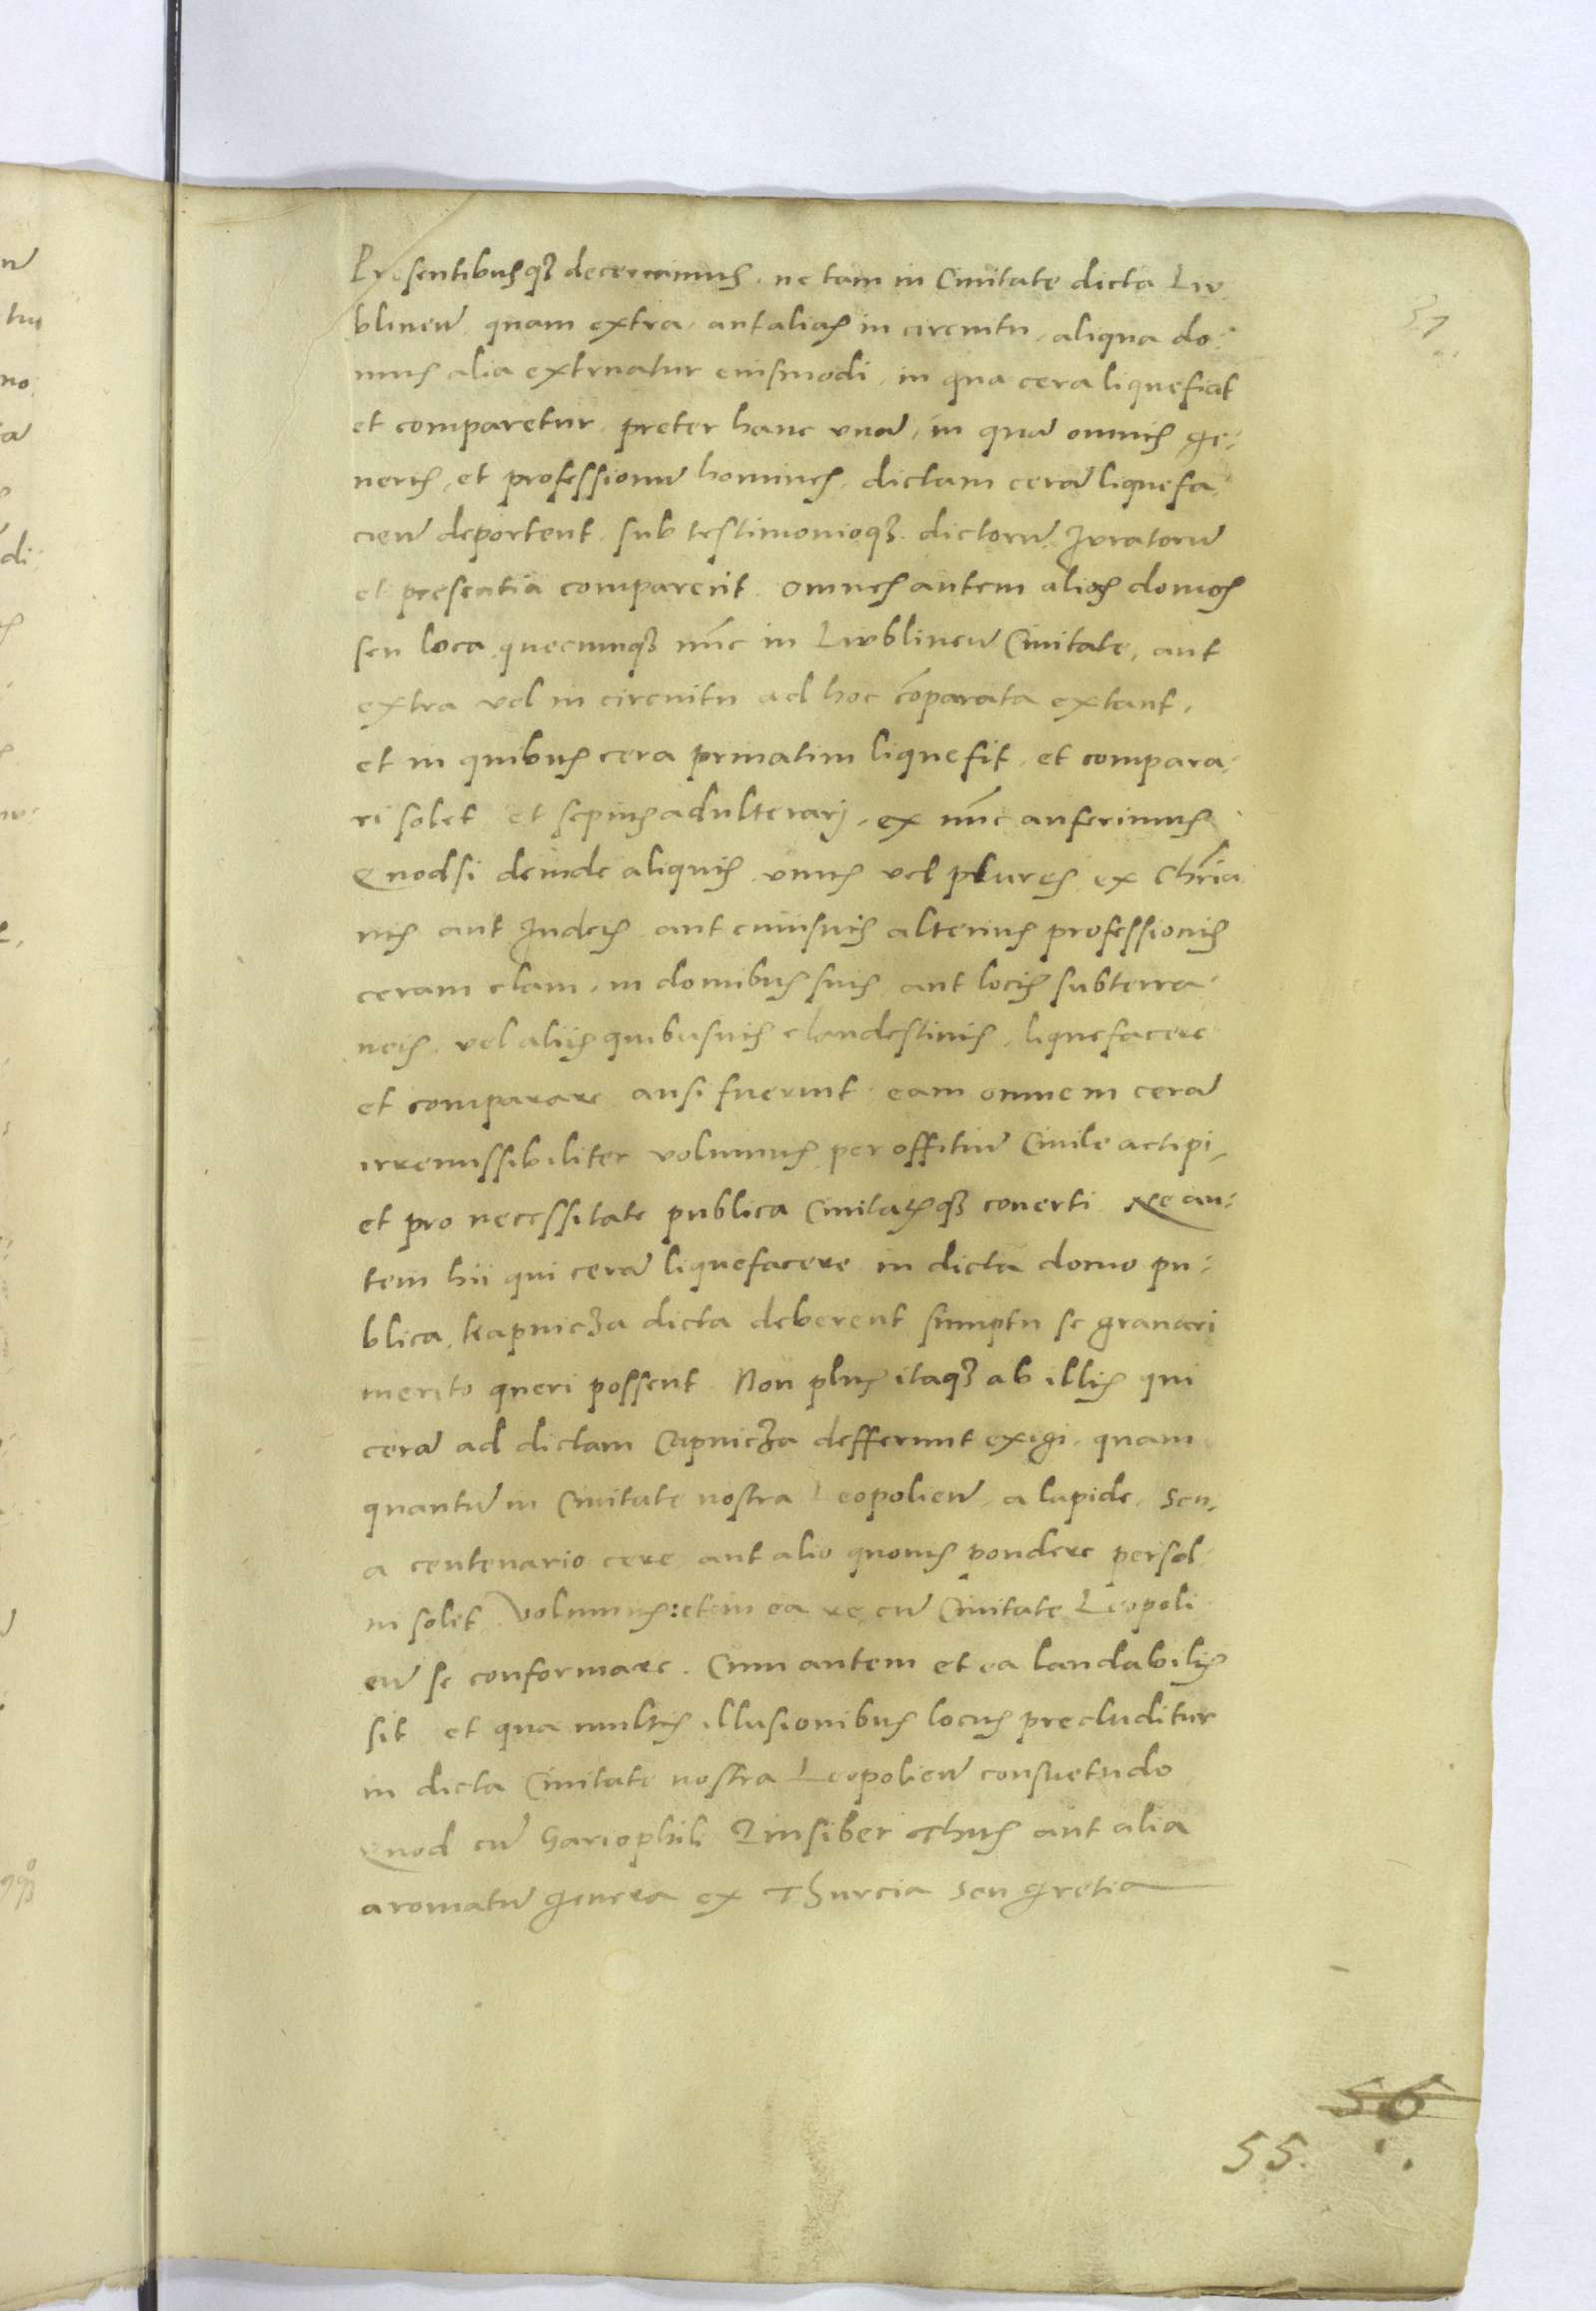 Presentibusq₃ decernimus. ne tam in Civitate dicta Lu
blinen̄ quam extra, aut alias in circuitu, aliqua do:
mus alia extruatur eiusmodi, in qua cera liquefiat
et comparetur, preter hanc vnā, in quā omnis ge:
neris, et professionū homines, dictam cerā liquefa:
cien̄ deportent sub testimonioq₃ dictorū Juratorū
et presentia comparent. Omnes autem alias domos
seu loca quecumq₃ nūc in Lublinen̄ Civitate, aut
extra vel in circuitu ad hoc cōparata extant,
et in quibus cera privatim liquefit, et compara:
ri solet et sepius adulterarj, ex nūc auferimus
Quodsi deinde aliquis vnus vel plures ex Chr̄ia
nis aut Judeis aut cuiusvis alterius professionis
ceram clam, in domibus suis aut locis subterra:
neis, vel aliis quibusvis clandestinis, liquefacere
et comparare ausi fuerint eam omnem cerā
irremissibiliter volumus per offitiū Civile accipi,
et pro necessitate publica Civitatisq₃ converti Ne au:
tem hii qui cerā liquefacere in dicta domo pu:
blica, kapnicza dicta deberent sumptu se gravari
merito queri possent Non plus itaq₃ ab illis qui
cerā ad dictam Capnicza defferunt exigi, quam
quantū in Civitate nostra Leopolien̄ a lapide, seu,
a centenario cere aut alio quovis pondere persol
vi solet volumus: etem ea re cū Civitate Leopoli
en̄ se conformare. Cum autem et ea laudabilis
sit et qua multis illusionibus locus precluditur
in dicta Civitate nostra Leopolien̄ consuetudo
Quod cū Gariophili Zinsiber Thus aut alia
aromatū genera ex Thurcia seu gretia
56
55.